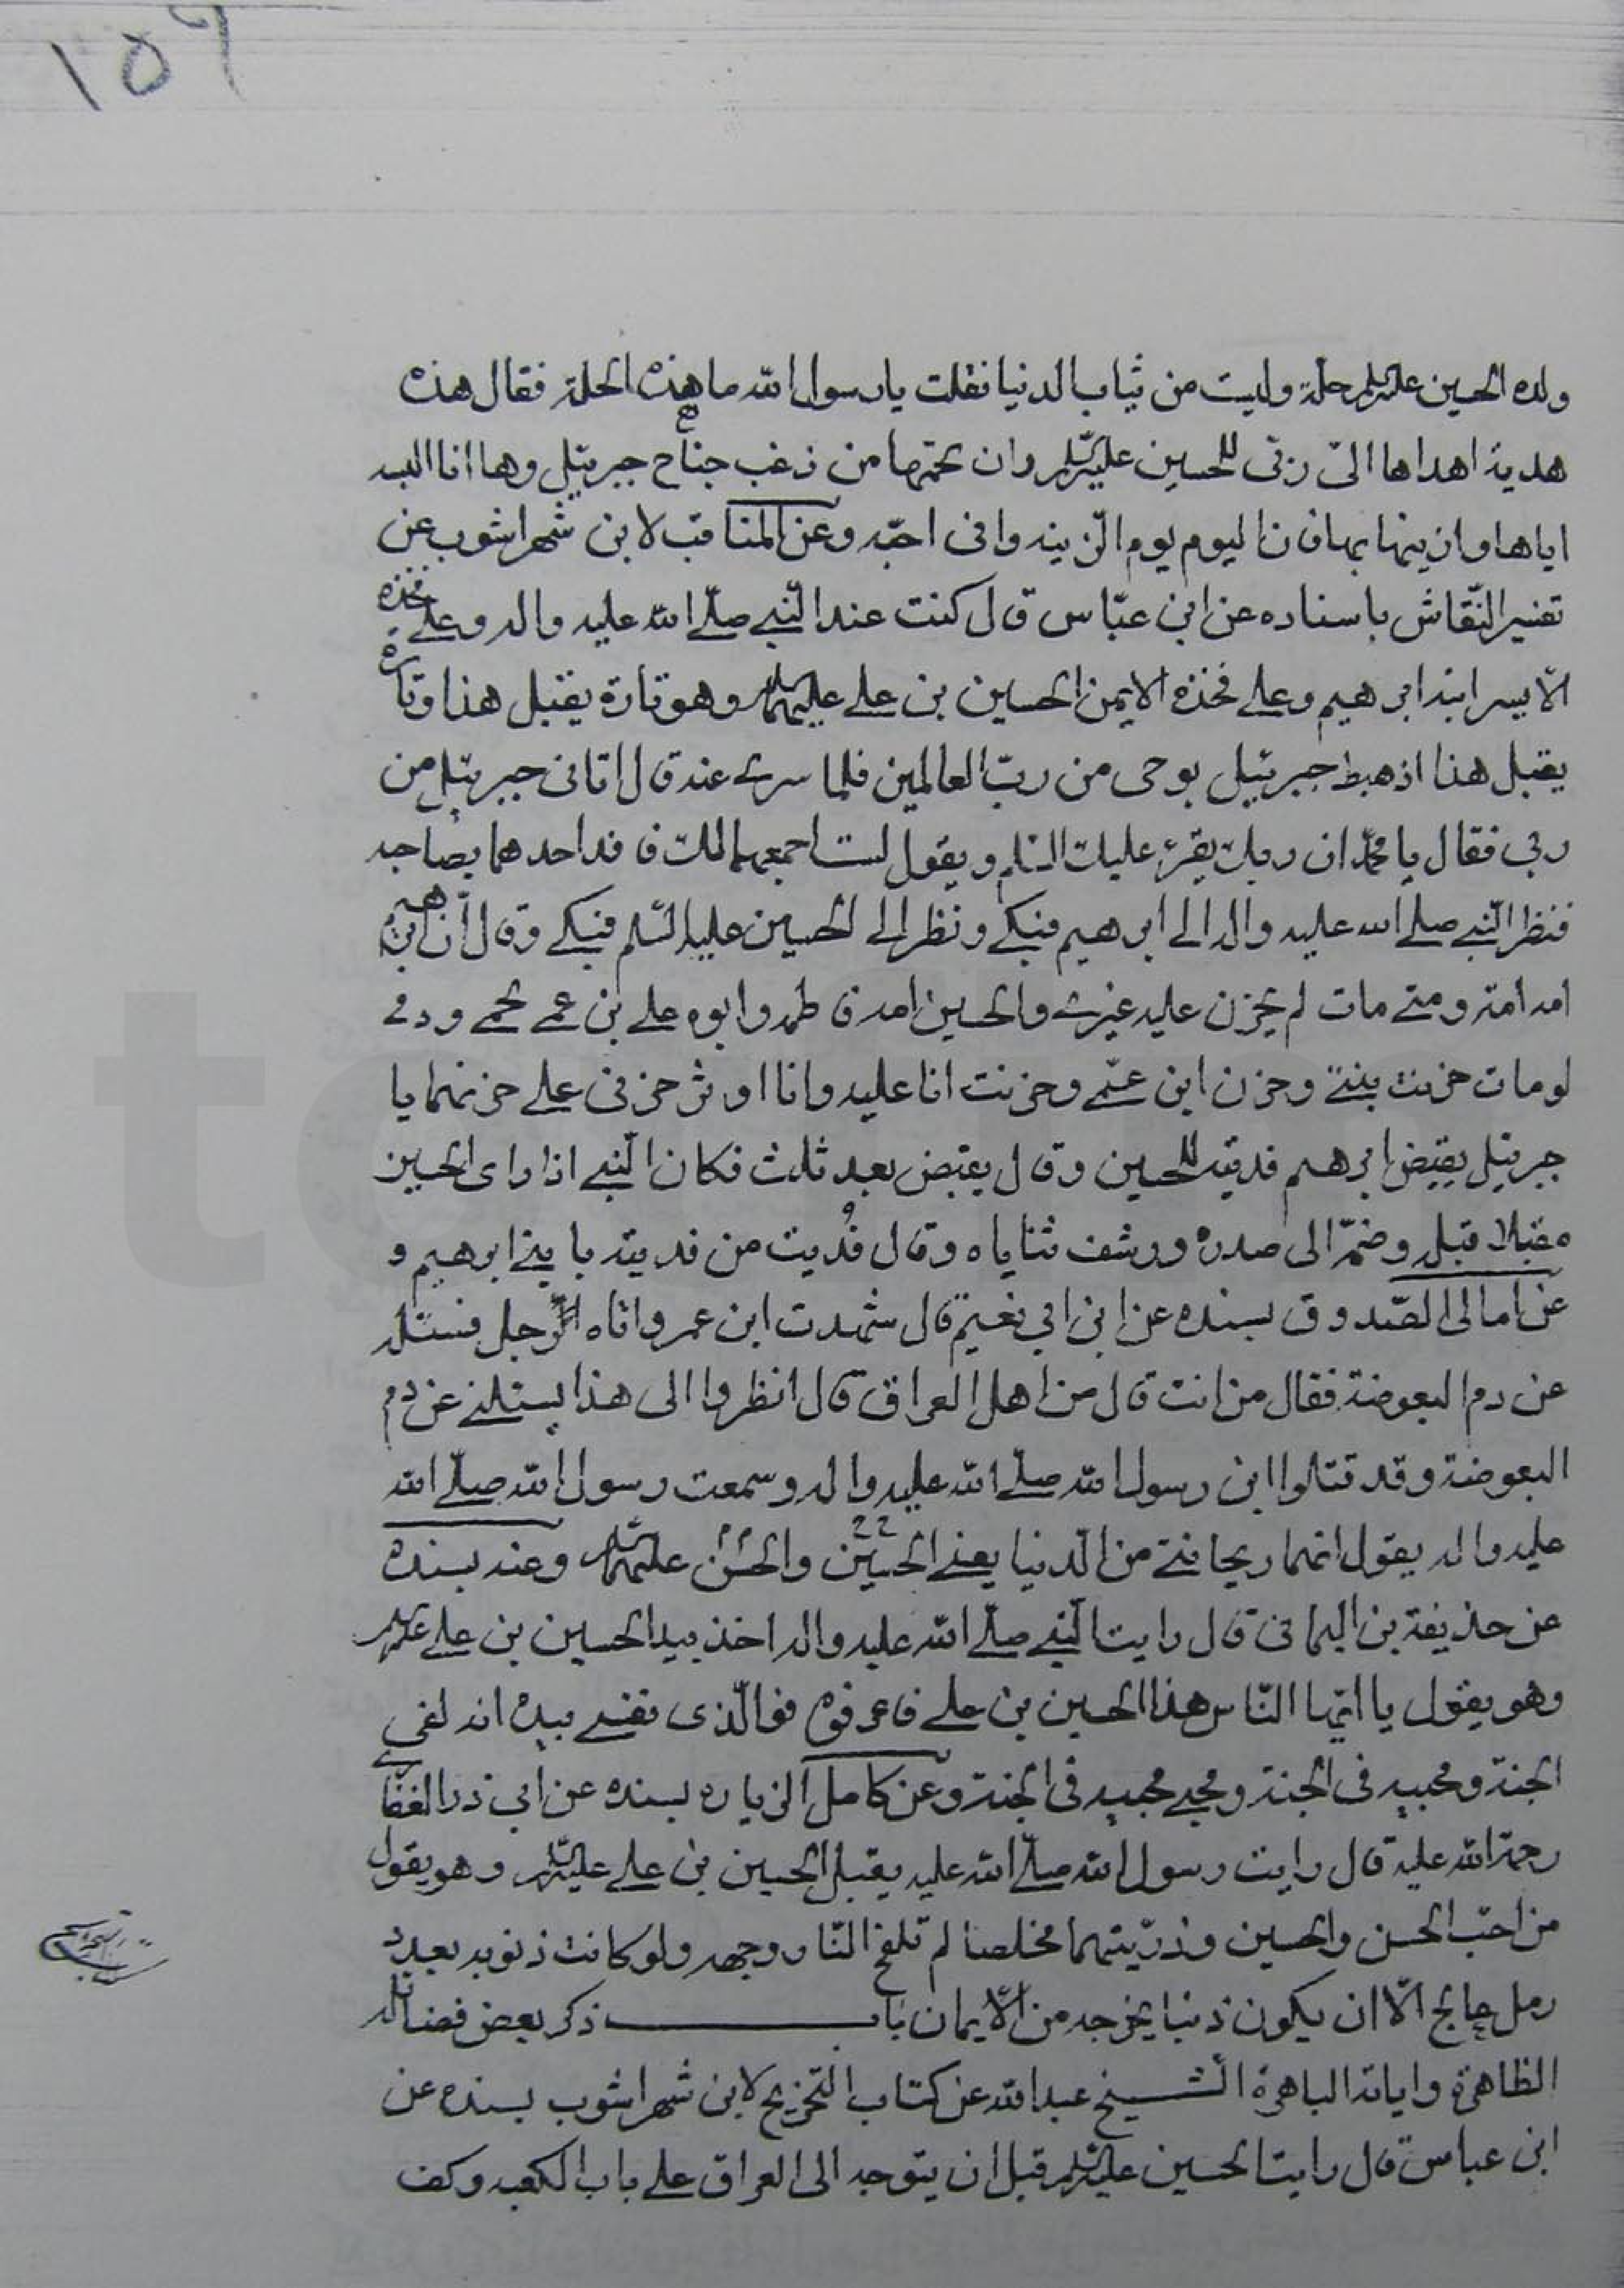 ١٥٦
ولده الحسين عليه السلم حلة وليست من ثياب الدنيا فقلت يا رسول الله ما هذه الحلة فقال هذه
هدية اهداها الىّ ربّى للحسين عليه السّلم وان لحمتها من زغب جناح جبرئيل وها انا البسه
اياها وازينها بها فان اليوم يوم الزينه وانى احبّه وعن المناقب لابن شهراشوب عن
تفسير النّقاش باسناده عن ابن عبّاس قال كنت عند النّبى صلّى الله عليه واله وعلى فخذه
الايسر ابنه ابرهيم وعلى فخذه الايمن الحسين بن على عليهما السلم وهو تارة يقبل هذا وتارة
يقبل هذا اذ هبط جبرئيل بوحى من ربّ العالمين فلما سرى عنه قال اتانى جبرئيل من
ربى فقال يا محمّد ان ربك يقرء عليك السّلم ويقول لست اجمعهما لك فافد احدهما بصاحبه
فنظر النّبى صلى الله عليه واله الى ابرهيم فبكى ونظر الى الحسين عليه السّلم فبكى وقال انّ ابرهيم
امه امة ومتى مات لم يحزن عليه غيرى والحسين امه فاطمه وابوه على بن عمى لحمى ودمى
لو مات حزنت بنتى وحزن ابن عمّى وحزنت انا عليه وانا اوثر حزنى على حزنهما يا
جبرئيل يقبض ابرهيم فديته للحسين وقال يقبض بعد ثلث فكان النّبى اذا راى الحسين
مقبلا قبله وضمّه الى صدره ورشف ثناياه وقال فُديت من فديته بابنى ابرهيم و
عن امالى الصّدوق بسنده عن ابن ابي نعيم قال شهدت ابن عمر واتاه الرّجل فسئله
عن دم البعوضة فقال من انت قال من اهل العراق قال انظروا الى هذا يسئلنى عن دم
البعوضة وقد قتلوا ابن رسول الله صلّى الله عليه واله وسمعت رسول الله صلّى الله
عليه واله يقول انهما ريحانتى من الدّنيا يعنى الحسين والحسن عليهما السلم وعنه بسنده
عن حذيفة بن اليمانى قال رايت النّبى صلّى الله عليه واله اخذ بيد الحسين بن على عليه السلم
وهو يقول يا ايّها النّاس هذا الحسين بن على فاعرفوه فوالّذى نفسى بيده انه لفى
الجنة ومحبيه فى الجنة ومحبى محبيه فى الجنة وعن كامل الزياره بسنده عن ابي ذر الغفارى
رحمة الله عليه قال رايت رسول الله صلّى الله عليه يقبل الحسين بن على عليه السّلم وهو يقول
من احبّ الحسن والحسين وذرّيتهما مخلصا لم تلفح النّار وجهه ولو كانت ذنوبه بعدد
رمل عالج الّا ان يكون ذنبا يخرجه من الايمان باب ذكر بعض فضائله
الظاهرة واياته الباهرة الشيخ عبد الله عن كتاب التخريج لابن شهراشوب بسنده عن
ابن عباس قال رايت الحسين عليه السّلم قبل ان يتوجه الى العراق على باب الكعبه وكف